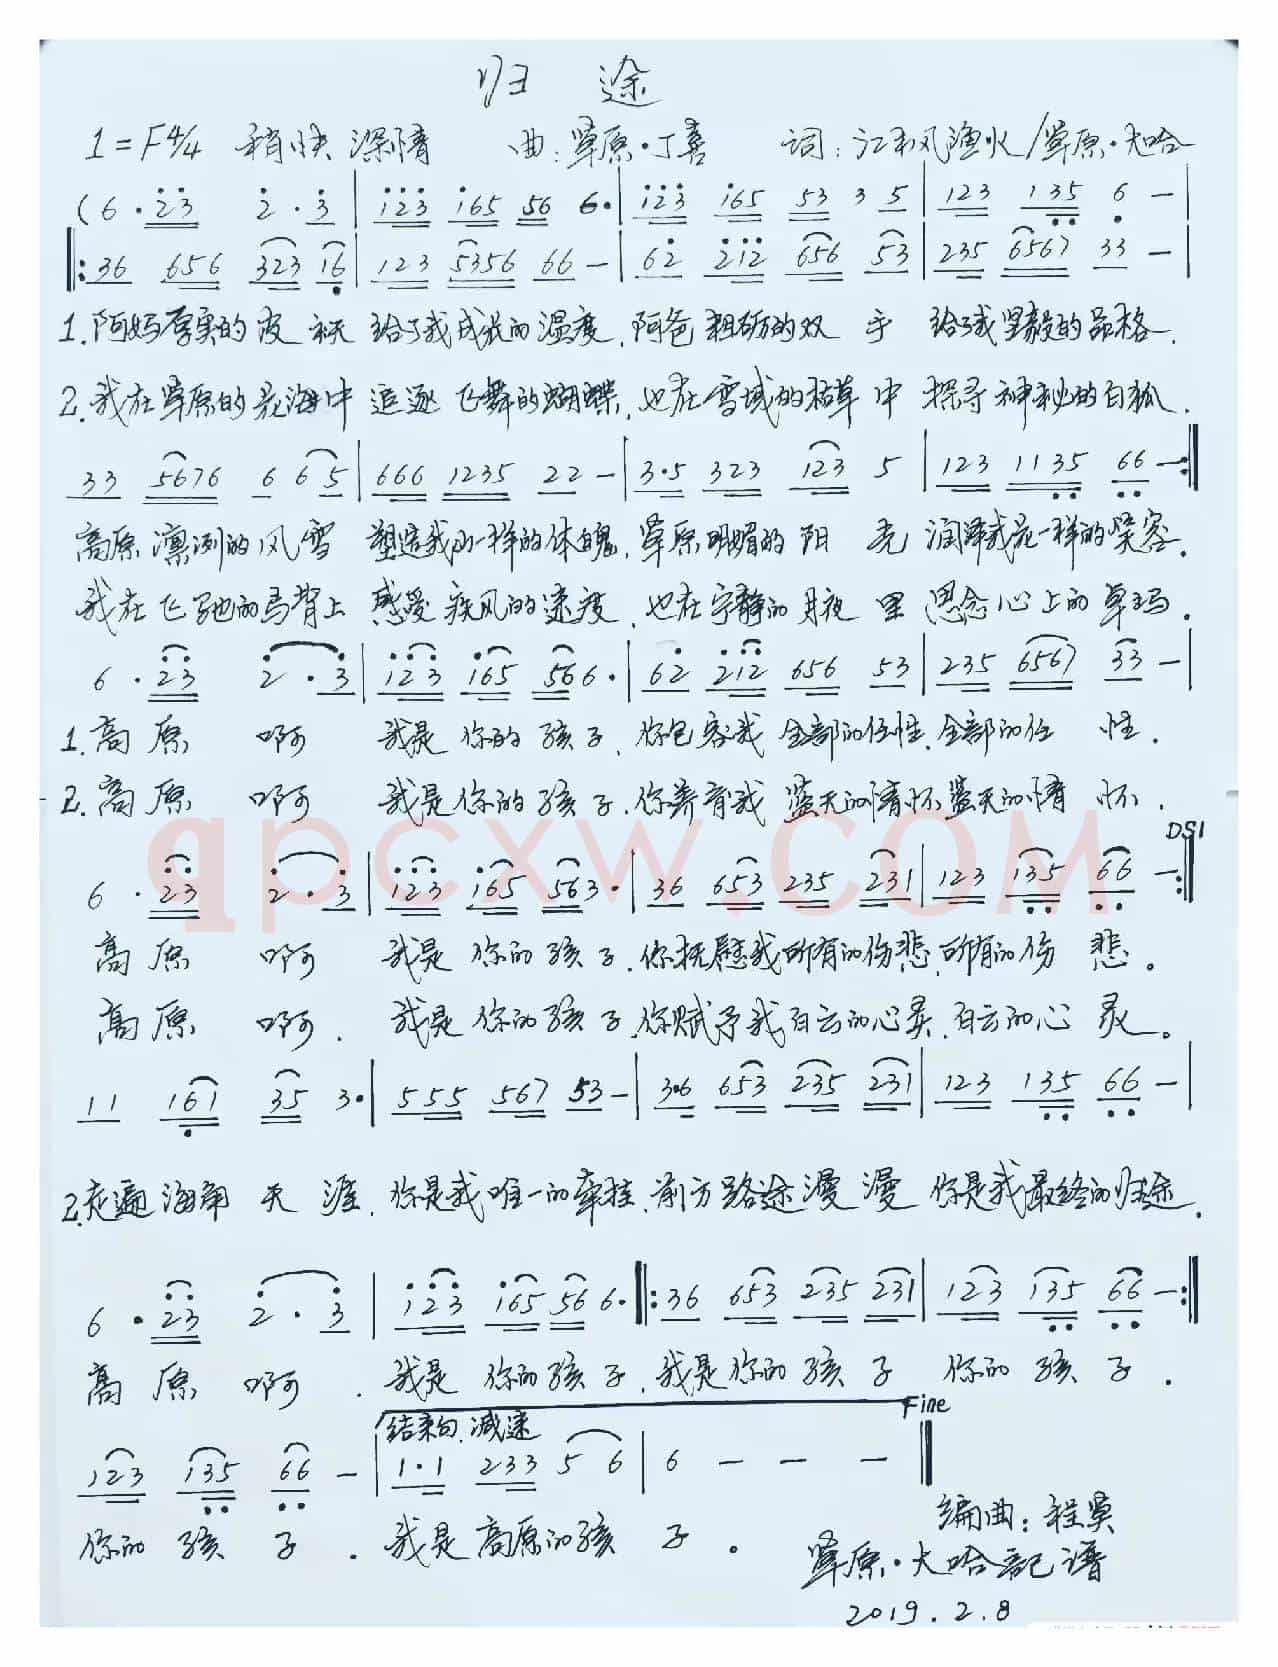 归 途
1=F4/4 稍快 深情 曲:草原·丁喜 词:江和风渔火/草原·大哈
(6·23 2·3 | 123 165 56 6· | 123 165 53 3 5 | 123 135 6 — |
‖: 36 656 323 16 | 123 5356 66 — | 62 212 656 53 | 235 6567 33 — |
1.阿妈厚实的皮袄 给了我成长的温度,阿爸粗砺的双 手 给了我坚毅的品格.
2.我在草原的花海中 追逐飞舞的蝴蝶,也在雪域的枯草中 探寻神秘的白狐.
33 5676 6 6 5 | 666 1235 22 — | 3·5 323 123 5 | 123 1135 66 — :‖
高原凛冽的风雪 塑造我山一样的体魄,草原明媚的阳 光 润泽我花一样的笑容.
我在飞驰的马背上 感受疾风的速度,也在宁静的月夜 里 思念心上的卓玛.
6·23 2·3 | 123 165 56 6· | 62 212 656 53 | 235 6567 33 — |
1.高原 啊 我是你的孩子,你包容我全部的任性,全部的任 性.
2.高原 啊 我是你的孩子,你养育我蓝天的情怀,蓝天的情 怀.
DS1
6·23 2·3 | 123 165 563· | 36 653 235 231 | 123 135 66 — :‖
高原 啊 我是你的孩子,你抚慰我所有的伤悲,所有的伤 悲。
高原 啊. 我是你的孩子,你赋予我白云的心灵,白云的心 灵。
11 161 35 3· | 555 567 53 — | 3·6 653 235 231 | 123 135 66 — |
2.走遍海角天涯,你是我唯一的牵挂,前方路途漫漫 你是我最终的归途.
6·23 2·3 | 123 165 56 6· ‖: 36 653 235 231 | 123 135 66 — :‖
高原 啊. 我是你的孩子,我是你的孩子 你的孩子.
结束句.减速 Fine
123 135 66 — | 1·1 233 5 6 | 6 — — — ‖
你的孩子. 我是高原的孩 子。
编曲:程昊
草原·大哈記谱
2019.2.8
qpcxw.COM